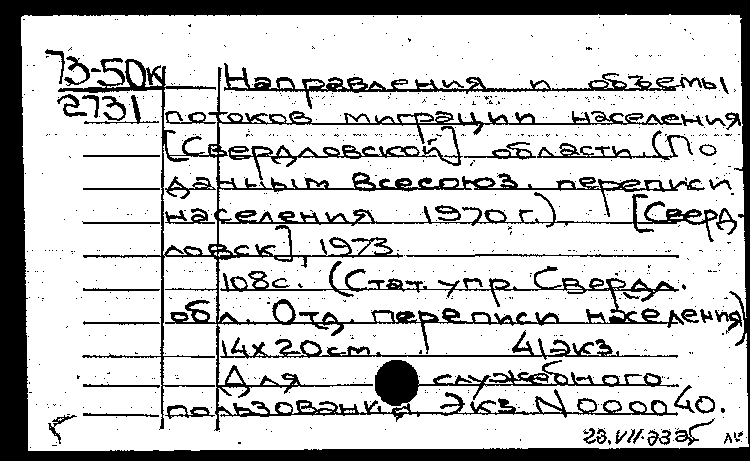 73-50к Направления и объемы
2731 потоков миграции населения
[Свердловской] области. (По
данным Всесоюз. переписи
населения 1970 г.). [Сверд-
ловск], 1973.
108с. (Стат. упр. Свердл.
обл. Отд. переписи населения)
14х20см. 41экз.
Для служебного
пользования. Экз. N000040.